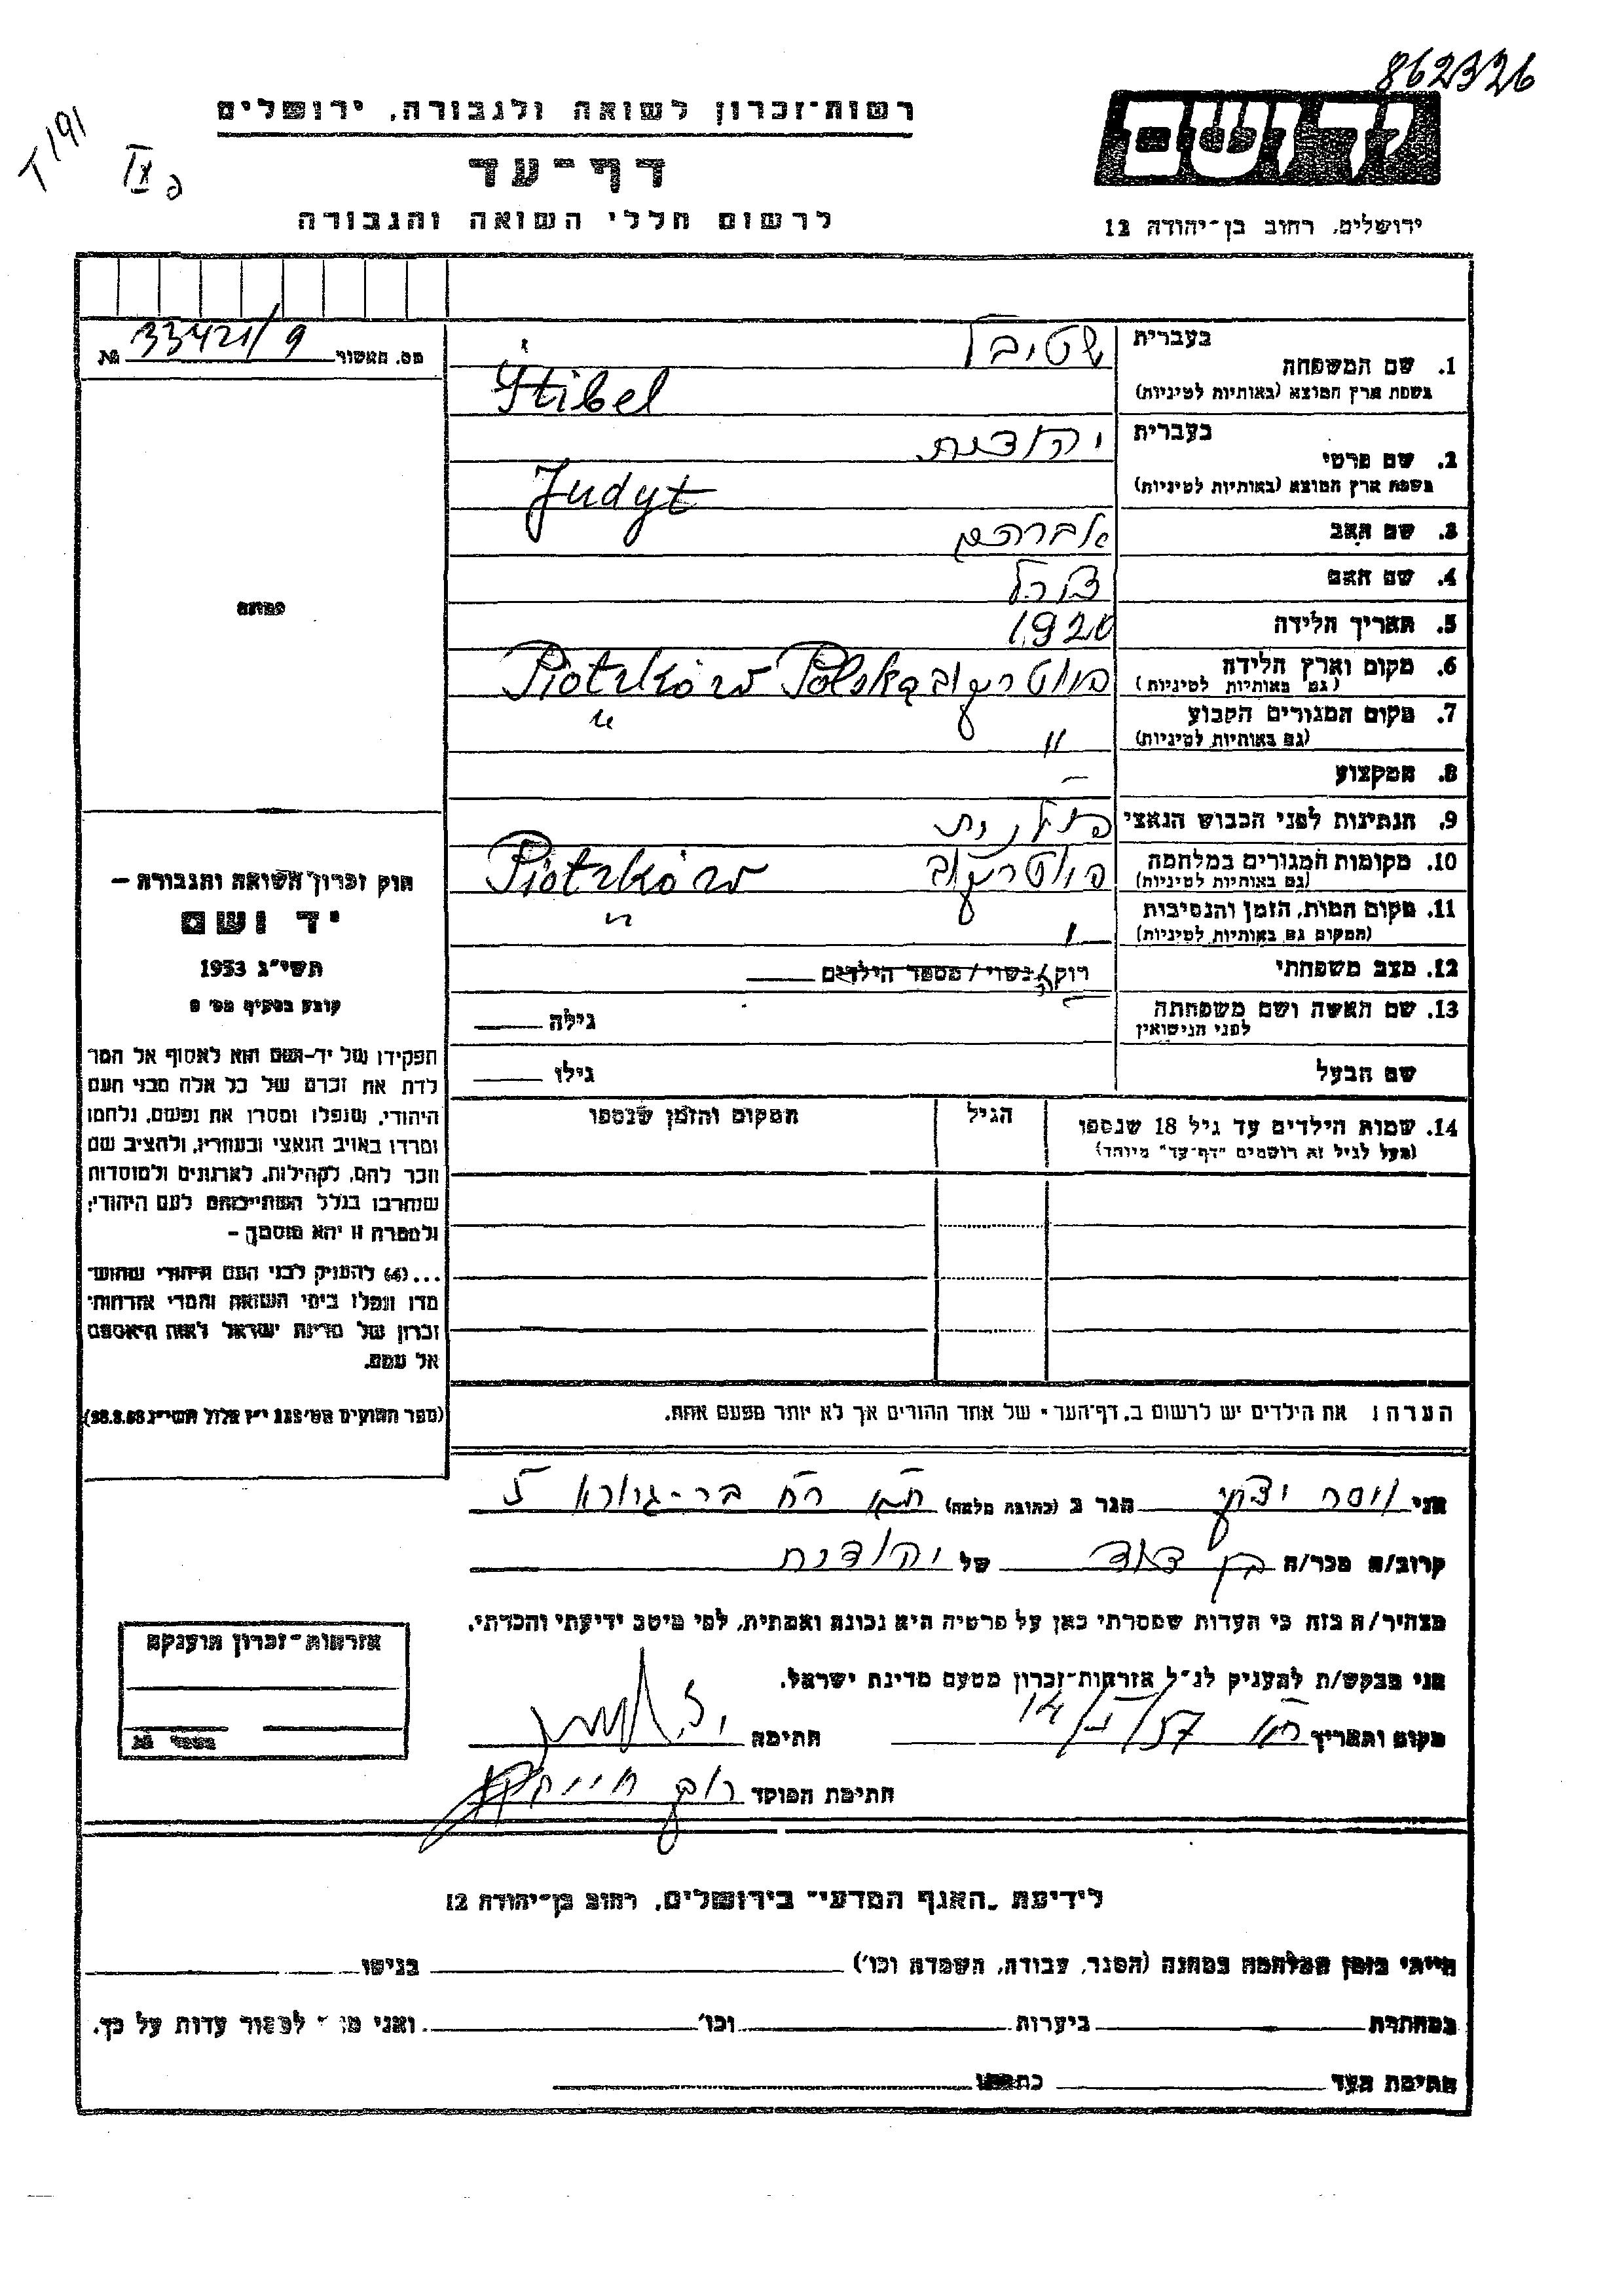 862326
T191
IX
רשות-זכרון לשואה ולגבורה, ירושלים
דף-עד
לרשום חללי השואה והגבורה
יד ושם
ירושלים, רחוב בן-יהודה 12
מס. האשור 33421/9 №
תמונה
1. שם המשפחה
בעברית שטיבל
בשפת ארץ המוצא (באותיות לטיניות) Stibel
2. שם פרטי
בעברית יהודית
בשפת ארץ המוצא (באותיות לטיניות) Judyt
3. שם האב אברהם
4. שם האם
5. תאריך הלידה 1920
6. מקום וארץ הלידה
(גם באותיות לטיניות) פיוטרקוב Piotrków Polska
7. מקום המגורים הקבוע
(גם באותיות לטיניות) " "
8. המקצוע —
9. הנתינות לפני הכבוש הנאצי פולנית
10. מקומות המגורים במלחמה
(גם באותיות לטיניות) פיוטרקוב Piotrków
11. מקום המות, הזמן והנסיבות
(המקום גם באותיות לטיניות) "
12. מצב משפחתי רוק/ה נשוי/מספר הילדים
13. שם האשה ושם משפחתה
לפני הנישואין
גילה
שם הבעל
גילו
14. שמות הילדים עד גיל 18 שנספו
(מעל לגיל זה רושמים "דף-עד" מיוחד)
הגיל
המקום והזמן שנספו
הערה: את הילדים יש לרשום ב"דף-העד" של אחד ההורים אך לא יותר מפעם אחת.
חוק זכרון השואה והגבורה –
יד ושם
תשי"ג 1953
קובע בסעיף מס' 2
תפקידו של יד-ושם הוא לאסוף אל המו־
לדת את זכרם של כל אלה מבני העם
היהודי, שנפלו ומסרו את נפשם, נלחמו
ומרדו באויב הנאצי ובעוזריו, ולהציב שם
וזכר להם, לקהילות, לארגונים ולמוסדות
שנחרבו בגלל השתייכותם לעם היהודי;
ולמטרה זו יהא מוסמך –
...(4) להעניק לבני העם היהודי שהוש־
מדו ונפלו בימי השואה והמרי אזרחות־
זכרון של מדינת ישראל לאות היאספם
אל עמם.
(ספר החוקים מס' 132 י"ז אלול תשי"ג 28.8.53)
אני הגר ב (כתובת מלאה) רח בר-גיורא 5
קרוב/ה מכר/ה בן דוד של יהודית
מצהיר/ה בזה כי העדות שמסרתי כאן על פרטיה היא נכונה ואמתית, לפי מיטב ידיעתי והכרתי.
אני מבקש/ת להעניק לנ"ל אזרחות-זכרון מטעם מדינת ישראל.
מקום ותאריך 14/I/57 חתימה
חתימת הפוקד
אזרחות-זכרון הוענקה
מספר №
לידיעת "האגף המדעי" בירושלים, רחוב בן-יהודה 12
הייתי בזמן המלחמה במחנה (הסגר, עבודה, השמדה וכו') בגיטו
במחתרת ביערות וכו' ואני לעדות על כך.
חתימת העד כתבתו